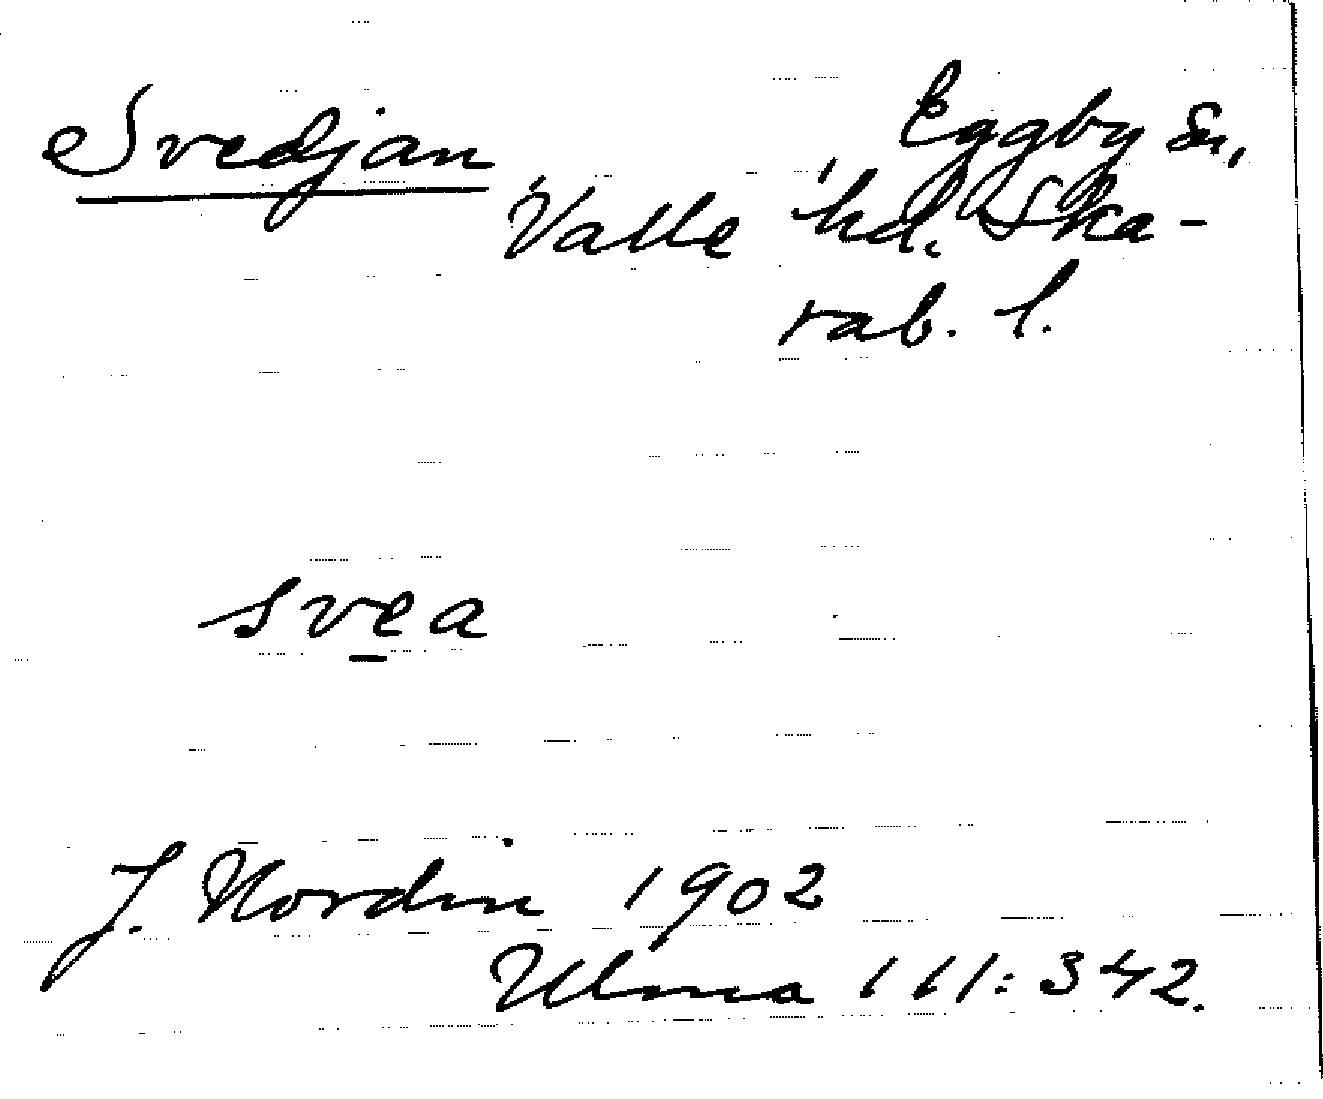 Svedjan
Eggby sn,
Valle hd. Ska-
rab. l.
svea
J. Nordin 1902
Ulma 111:342.